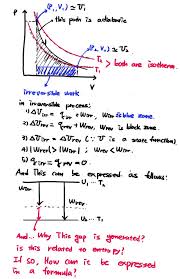 P
(P₁, V₁) ≡ U₁
this path is adiabatic
(P₂, V₂) ≡ U₂
T₂
T₁ > both are isotherm.
V
irreversible work
in irreversible process:
1) ΔUirr = qirr + Wirr, Wirr is blue zone.
2) ΔUrev = qrev + Wrev, Wrev is black zone.
3) ΔUirr = ΔUrev (∵ U is a state function)
4) |Wrev| > |Wirr| ; Wrev < Wirr.
5) qirr = qrev = 0.
And This can be expressed as follows:
U₁ ... T₂
Wirr
Wrev
Wirr
Wrev
U₂ ... T₁
And... Why This gap is generated?
is this related to entropy?
If so, How can it be expressed
in a formula?